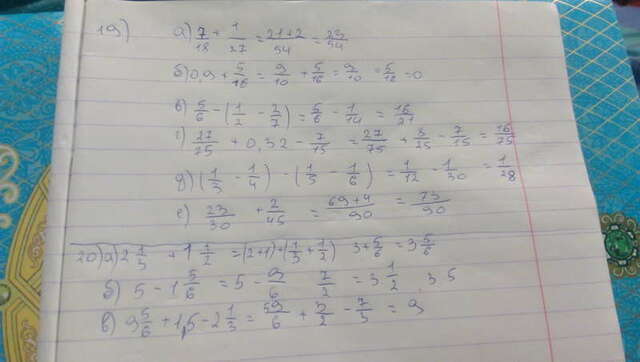 19) а) 7/18 + 1/27 = 21+2/54 = 23/54
б) 0,9 + 5/18 = 9/10 + 5/18 = 9/10 = 5/18 = 0
в) 5/6 - (1/2 - 2/7) = 5/6 - 1/14 = 16/21
г) 27/75 + 0,32 - 7/15 = 27/75 + 8/25 - 7/15 = 16/75
д) (1/3 - 1/4) - (1/5 - 1/6) = 1/12 - 1/30 = 1/28
е) 23/30 + 2/45 = 69+4/90 = 73/90
20) а) 2 1/3 + 1 1/2 = (2+1)+(1/3+1/2) 3+5/6 = 3 5/6
б) 5 - 1 5/6 = 5 - 9/6 7/2 = 3 1/2 3,5
в) 9 5/6 + 1,5 - 2 1/3 = 59/6 + 3/2 - 7/3 = 9